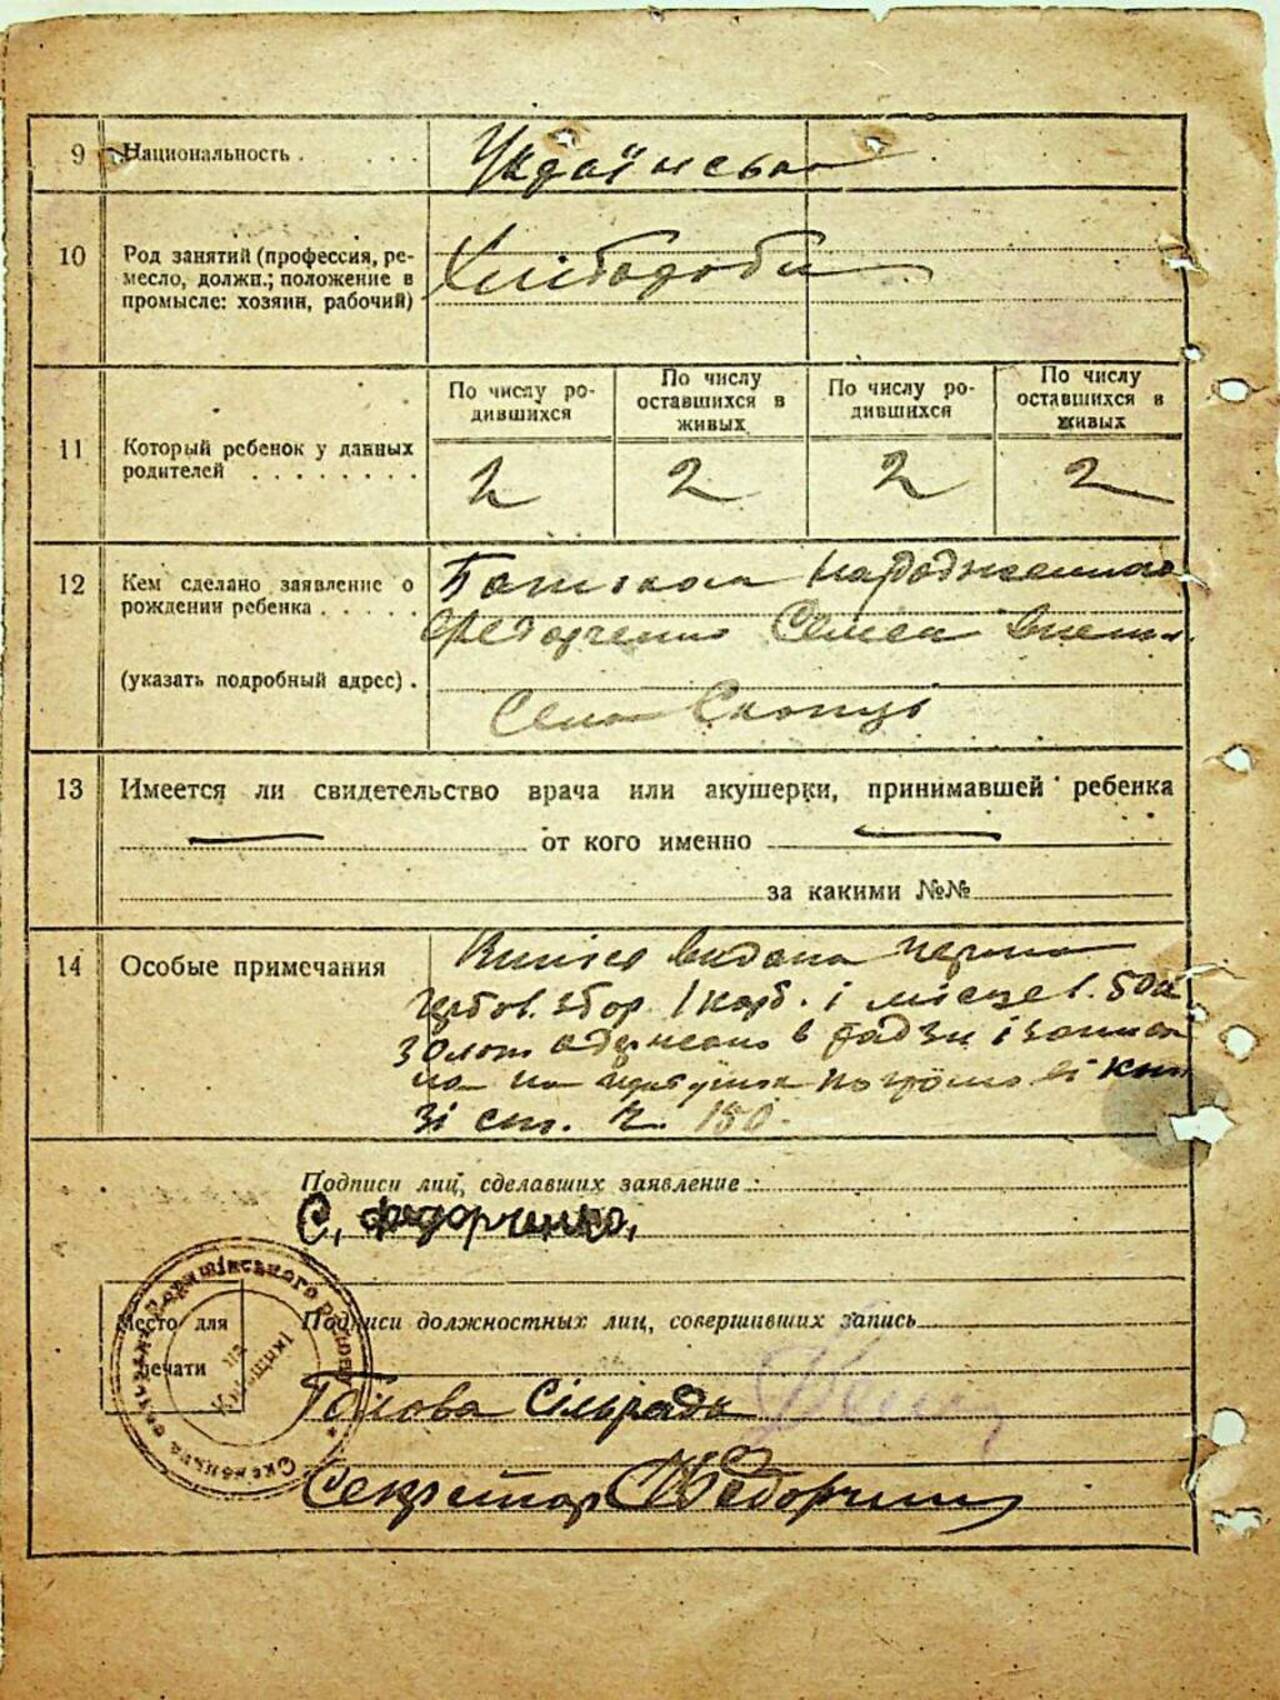 9 Национальность . . . . .
Українська
10 Род занятий (профессия, ре-
месло, должн.; положение в
промысле: хозяин, рабочий)
Хлібороби
По числу ро-
дившихся
По числу
оставшихся в
живых
По числу ро-
дившихся
По числу
оставшихся в
живых
11 Который ребенок у данных
родителей . . . . . . . .
2 2 2 2
12 Кем сделано заявление о
рождении ребенка . . . . .
(указать подробный адрес) .
Батьком народженного
Федорченко Семен
Село Скопці
13 Имеется ли свидетельство врача или акушерки, принимавшей ребенка
от кого именно
за какими №№
14 Особые примечания
видана перша
збор. 1 карб. і місцев. 50 к
в радзи і
на по
зі ст. ч. 150.
Подписи лиц, сделавших заявление :
С, Федорченко,
Место для
печати
Подписи должностных лиц, совершивших запись
Голова Сільради
Секретар Федорченко